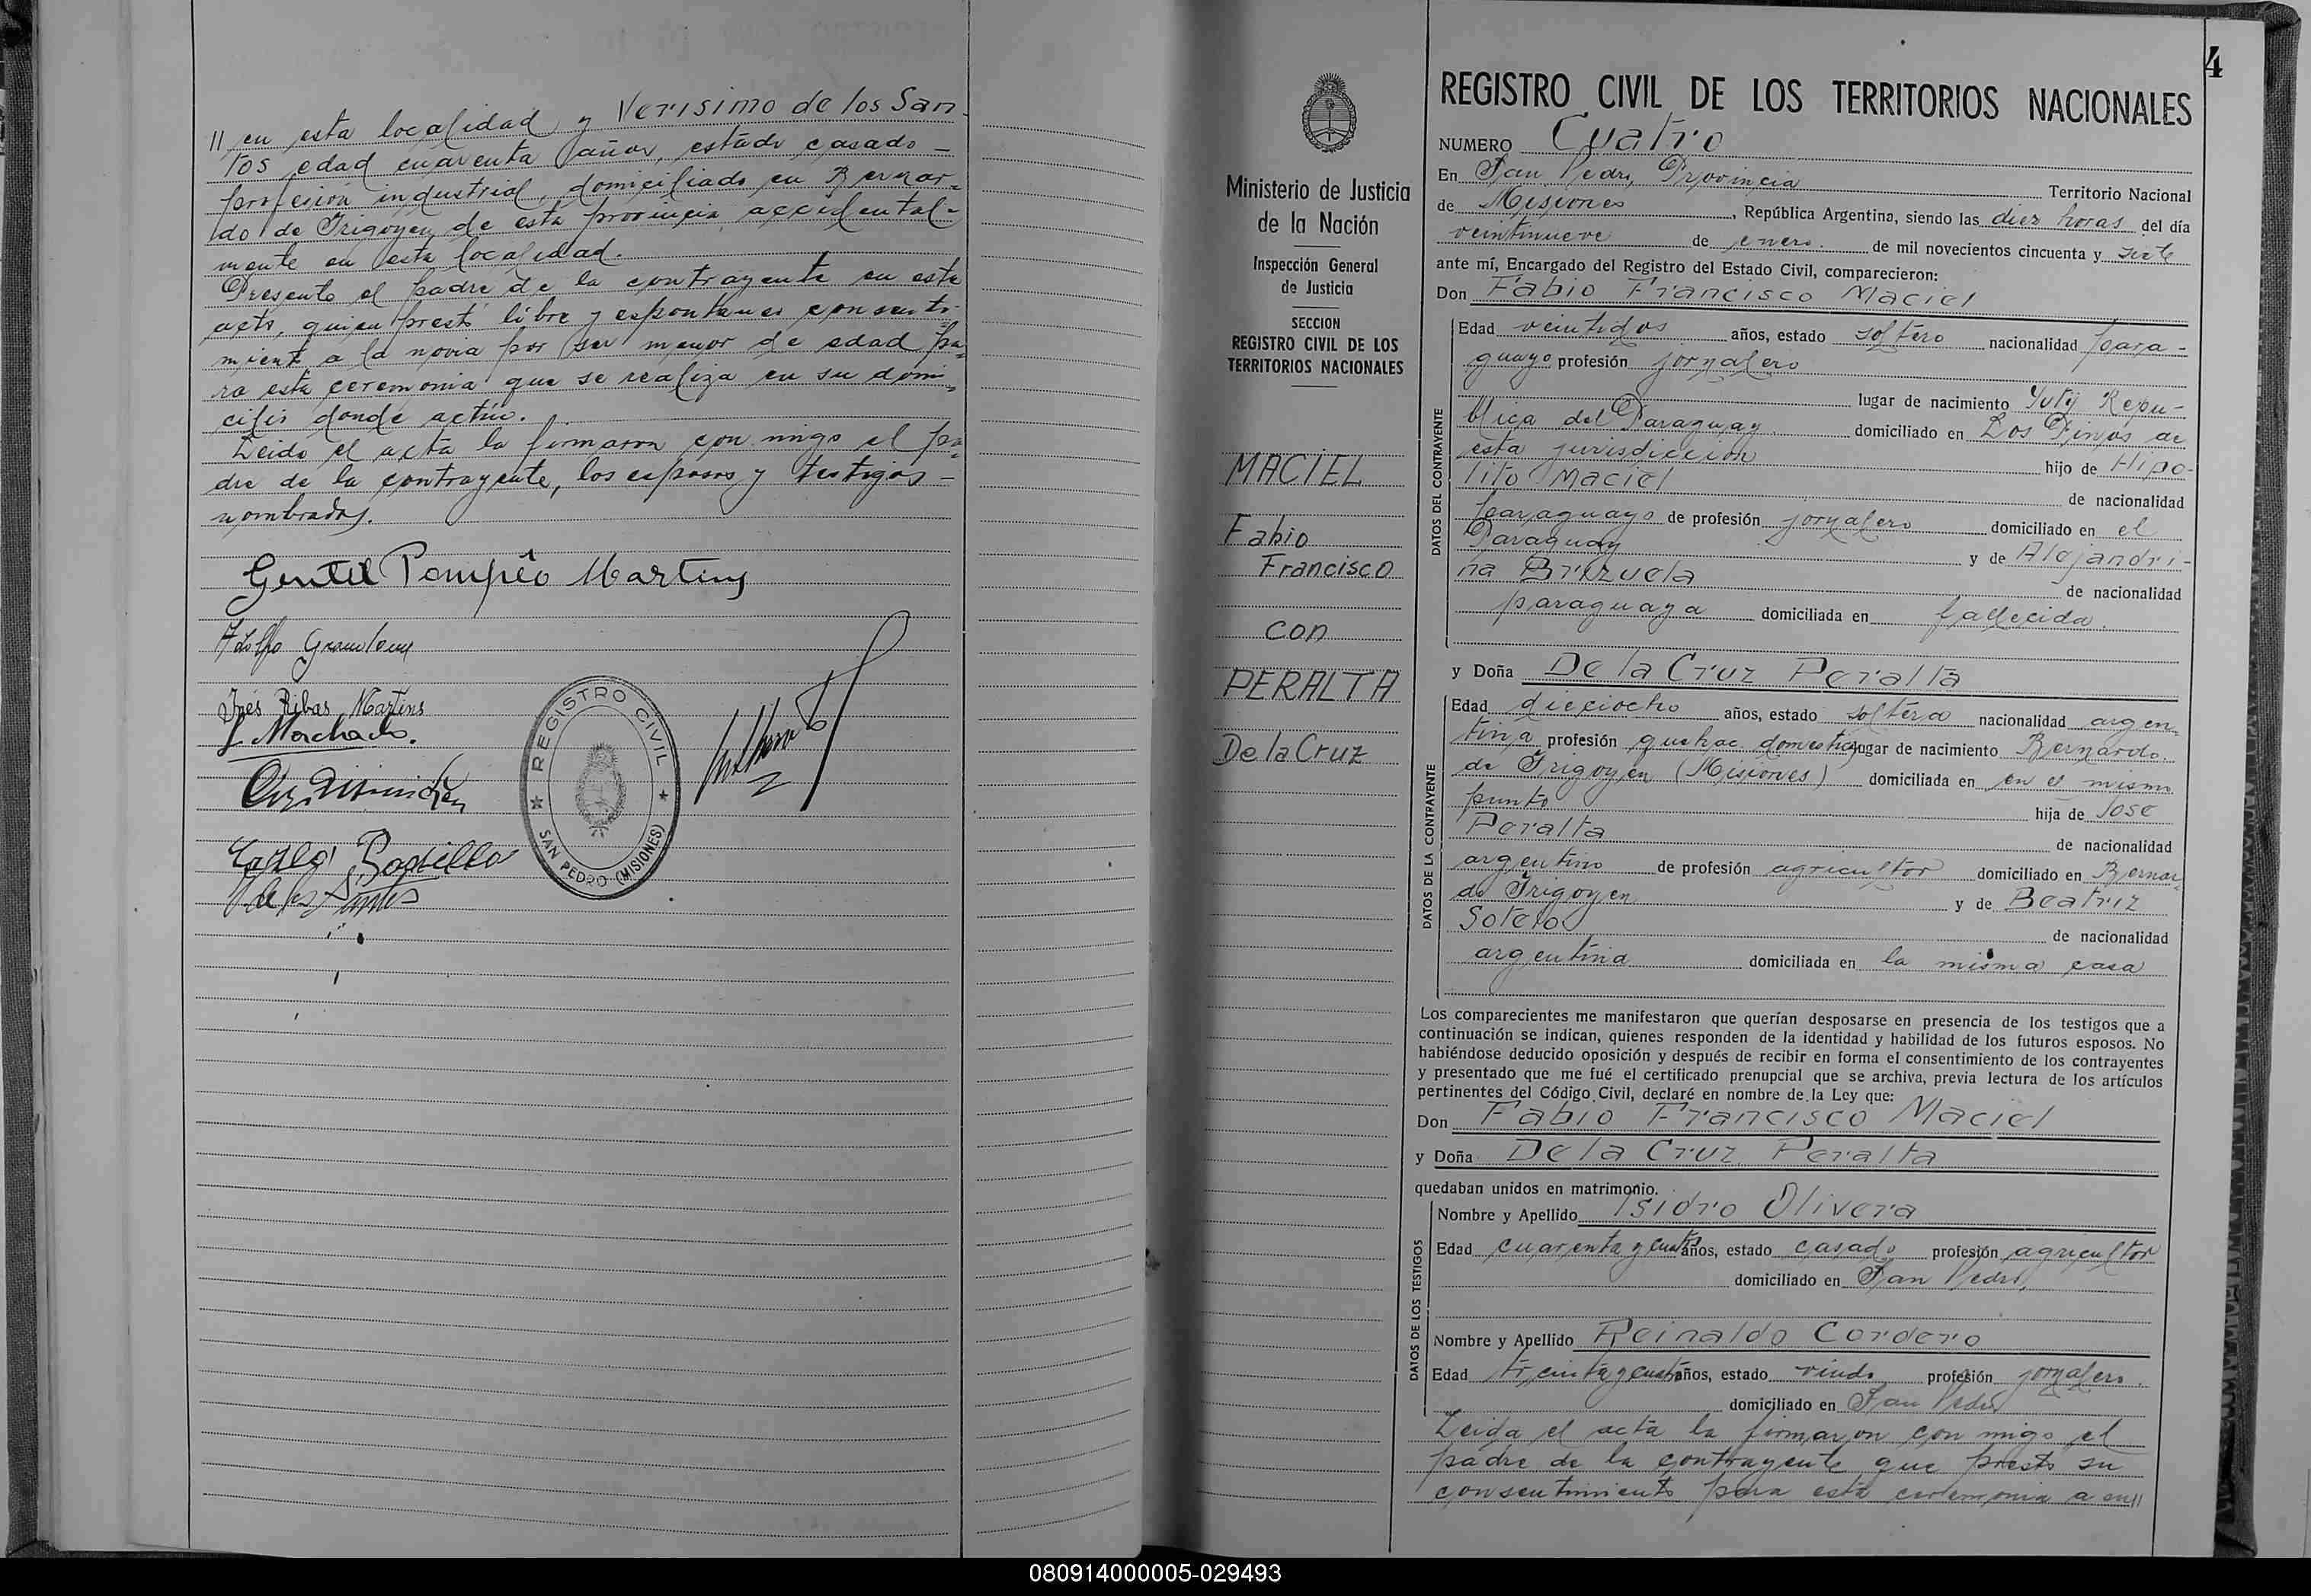 // en esta localidad y Verisimo de los San-
tos edad cuarenta años, estado casado-
profesión industrial, domiciliado en Bernar-
do de Irigoyen de esta provincia accidental-
mente en esta localidad.
Presente el padre de la contrayente en este
acto, quien prestó libre y espontaneo consenti-
miento a la novia por ser menor de edad pa-
ra esta ceremonia que se realiza en su domi-
cilio donde actúo.
Leido el acta la firmaron con migo el pa-
dre de la contrayente, los esposos y testigos-
nombrados.
Gentil Pompêo Martins
Adolfo
Inés Ribas Martins
Machado.
Carlos Bonilla
de los Santos
REGISTRO CIVIL
SAN PEDRO (MISIONES)
Ministerio de Justicia
de la Nación
Inspección General
de Justicia
SECCION
REGISTRO CIVIL DE LOS
TERRITORIOS NACIONALES
MACIEL
Fabio
Francisco
con
PERALTA
De la Cruz
4
REGISTRO CIVIL DE LOS TERRITORIOS NACIONALES
NUMERO Cuatro
En San Pedro, Provincia Territorio Nacional
de Misiones, República Argentina, siendo las diez horas del día
veintinueve de enero de mil novecientos cincuenta y siete
ante mí, Encargado del Registro del Estado Civil, comparecieron:
Don Fabio Francisco Maciel
DATOS DEL CONTRAYENTE
Edad veintidos años, estado soltero nacionalidad para-
guayo profesión jornalero
lugar de nacimiento Yuty Repu-
blica del Paraguay domiciliado en Los Pinos de
esta jurisdicción hijo de Hipo-
lito Maciel de nacionalidad
paraguayo de profesión jornalero domiciliado en el
Paraguay y de Alejandri-
na Brizuela de nacionalidad
paraguaya domiciliada en fallecida.
y Doña De la Cruz Peralta
DATOS DE LA CONTRAYENTE
Edad dieciocho años, estado soltera nacionalidad argen-
tina profesión quehac. domestic lugar de nacimiento Bernardo
de Irigoyen (Misiones) domiciliada en en el mismo
punto hija de José
Peralta de nacionalidad
argentino de profesión agricultor domiciliado en Bernar-
do Irigoyen y de Beatriz
Sotelo de nacionalidad
argentina domiciliada en la misma casa
Los comparecientes me manifestaron que querían desposarse en presencia de los testigos que a
continuación se indican, quienes responden de la identidad y habilidad de los futuros esposos. No
habiéndose deducido oposición y después de recibir en forma el consentimiento de los contrayentes
y presentado que me fué el certificado prenupcial que se archiva, previa lectura de los artículos
pertinentes del Código Civil, declaré en nombre de la Ley que:
Don Fabio Francisco Maciel
y Doña De la Cruz Peralta
quedaban unidos en matrimonio.
DATOS DE LOS TESTIGOS
Nombre y Apellido Isidro Olivera
Edad cuarenta y cuatro años, estado casado profesión agricultor
domiciliado en San Pedro,
Nombre y Apellido Reinaldo Cordero
Edad treinta y cuatro años, estado viudo profesión jornalero.
domiciliado en San Pedro
Leida el acta la firmaron con migo el
padre de la contrayente que prestó su
consentimiento para esta ceremonia a su//
080914000005-029493